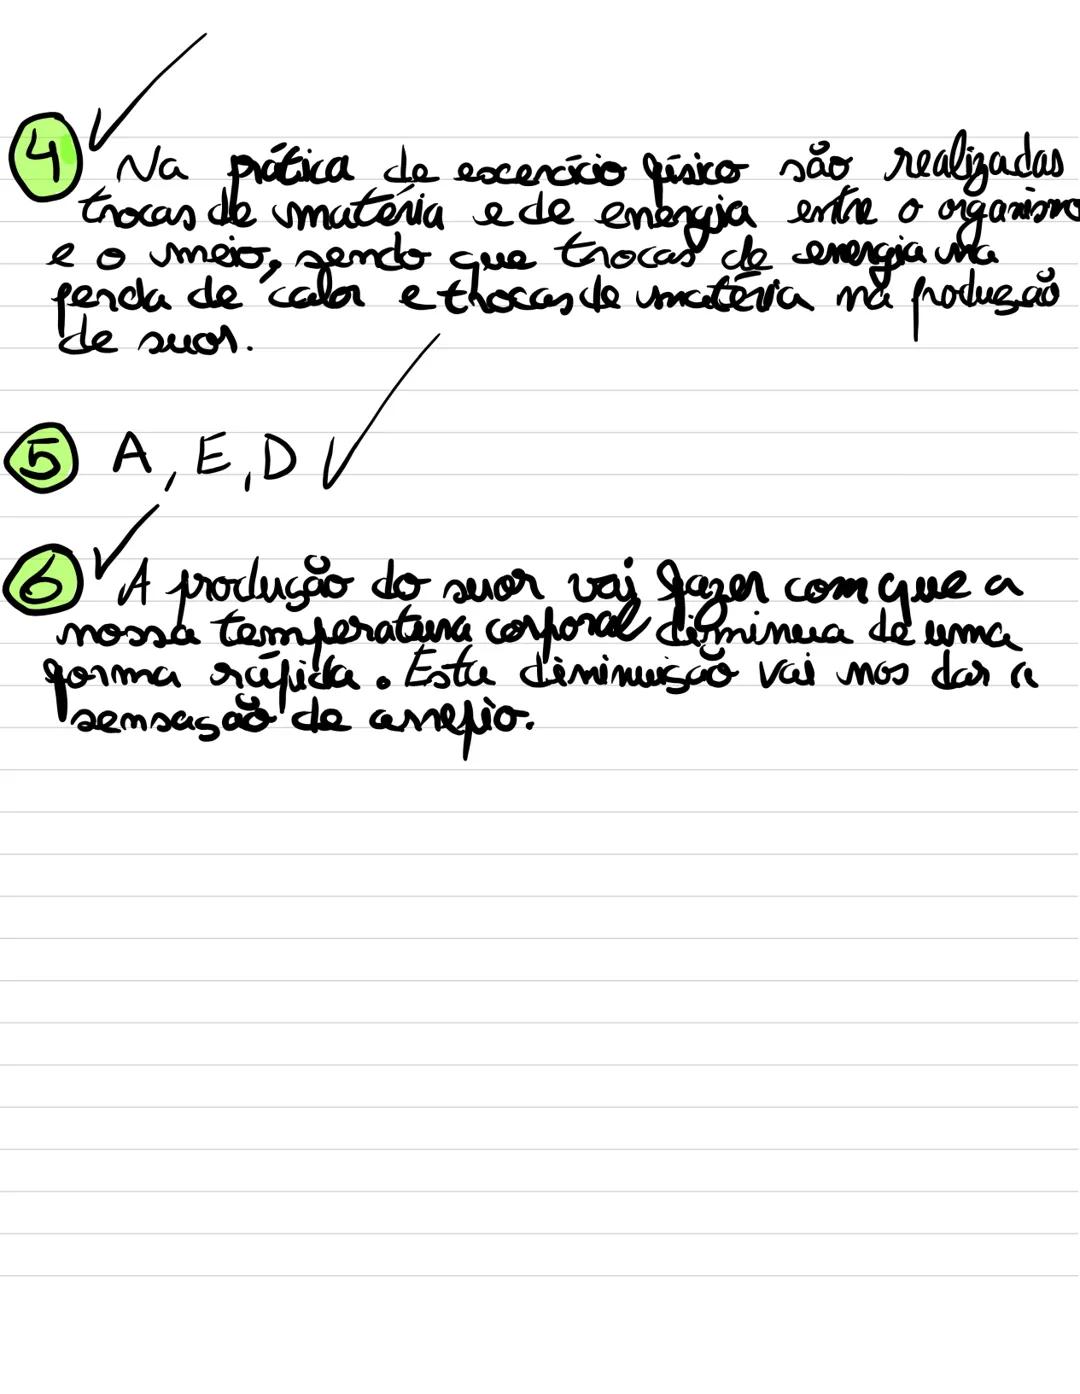 4 Na prática de escercício físico são realizadas
trocas de matéria e de energia entre o organismo
e o meio, sendo que trocas de energia na
perda de calor e trocas de matéria na produção
de suor.
5 A, E, D
6 A produção do suor vai fazer com que a
nossa temperatura corporal diminua de uma
forma rápida. Esta diminuição vai nos dar a
sensação de arrepio.